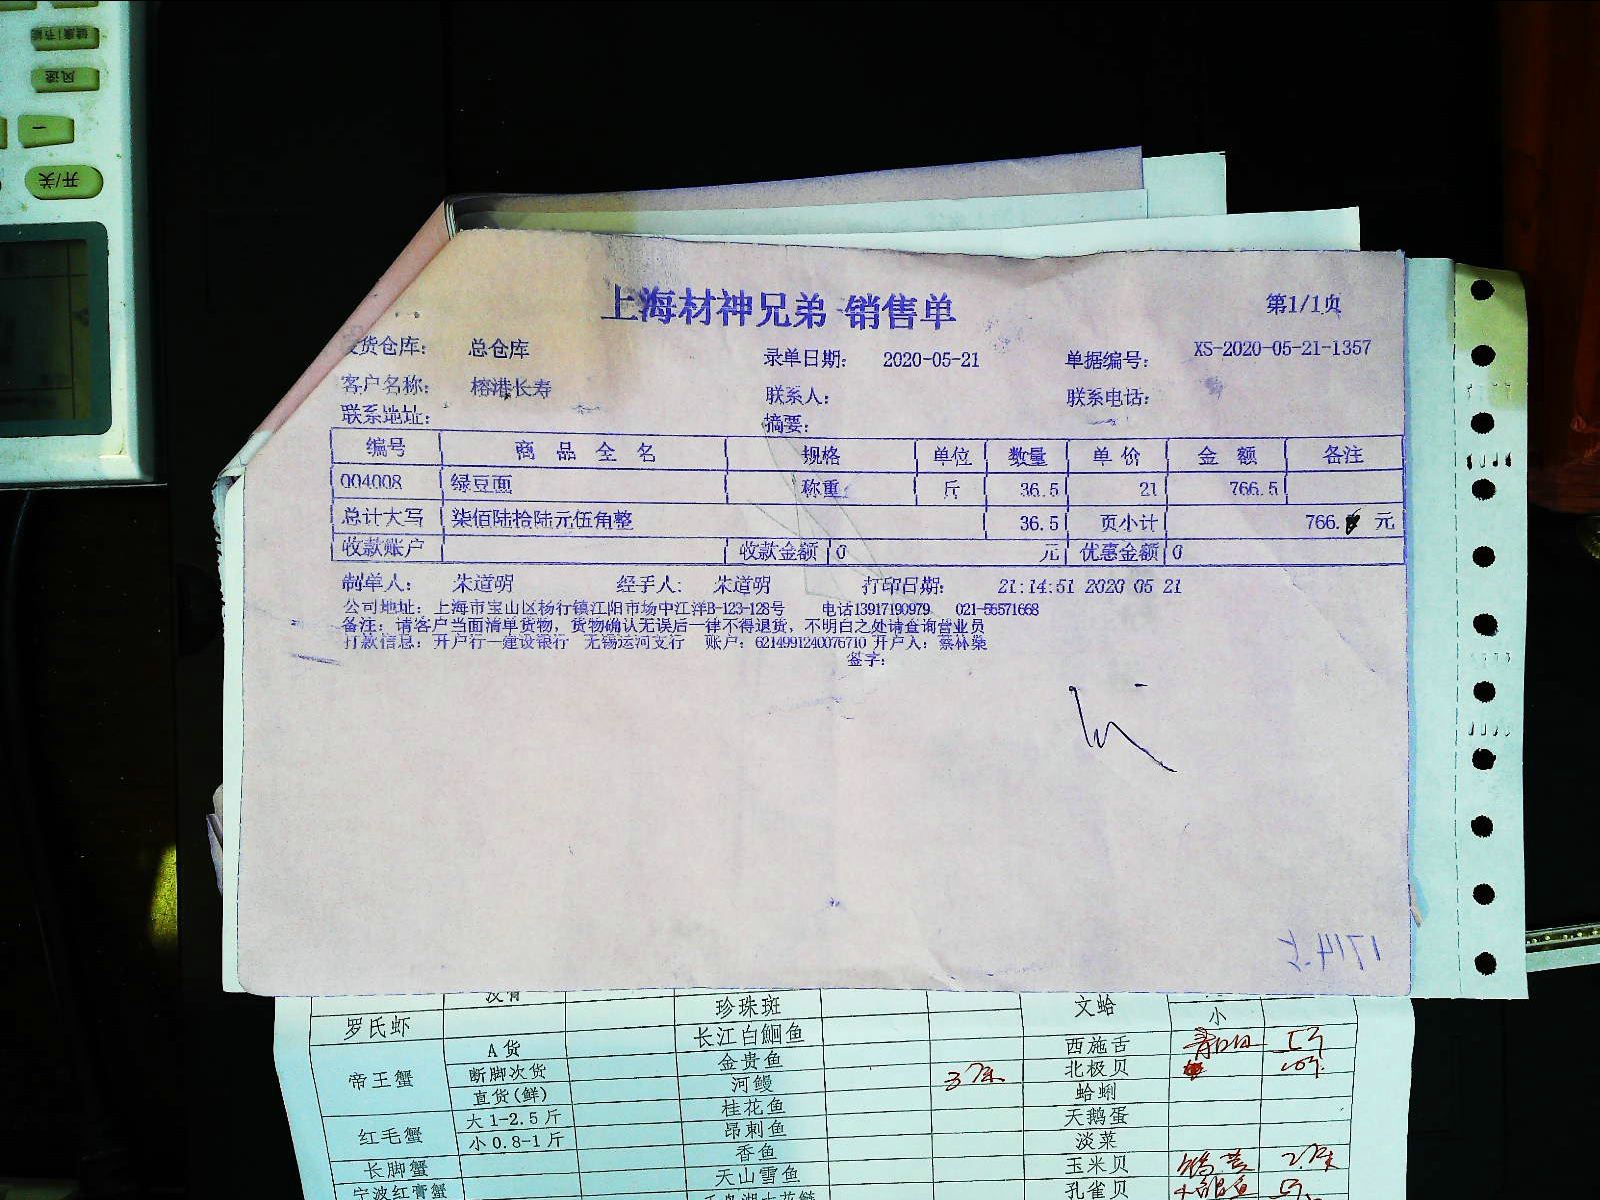 健康|节能
风速
开/关
上海材神兄弟 销售单
第1/1页
发货仓库: 总仓库
录单日期: 2020-05-21
单据编号: XS-2020-05-21-1357
客户名称: 榕港长寿
联系人:
联系电话:
联系地址:
摘要:
编号 商品全名 规格 单位 数量 单价 金额 备注
004008 绿豆面 称重 斤 36.5 21 766.5
总计大写 柒佰陆拾陆元伍角整 36.5 页小计 766. 元
收款账户 收款金额 0 元 优惠金额 0
制单人: 朱道明 经手人: 朱道明 打印日期: 21:14:51 2020 05 21
公司地址: 上海市宝山区杨行镇江阳市场中江洋B-123-128号 电话13917190979 021-56571668
备注: 请客户当面清单货物, 货物确认无误后一律不得退货, 不明白之处请查询营业员
打款信息: 开户行—建设银行 无锡运河支行 账户: 6214991240076710 开户人: 蔡林燊
签字:
没有 珍珠斑 文蛤 小
罗氏虾 长江白鮰鱼
帝王蟹 A货 金贵鱼 西施舌
断脚次货 河鳗 北极贝
直货(鲜) 桂花鱼 蛤蜊
红毛蟹 大1-2.5斤 昂刺鱼 天鹅蛋
小0.8-1斤 香鱼 淡菜
长脚蟹 天山雪鱼 玉米贝
宁波红膏蟹 孔雀贝